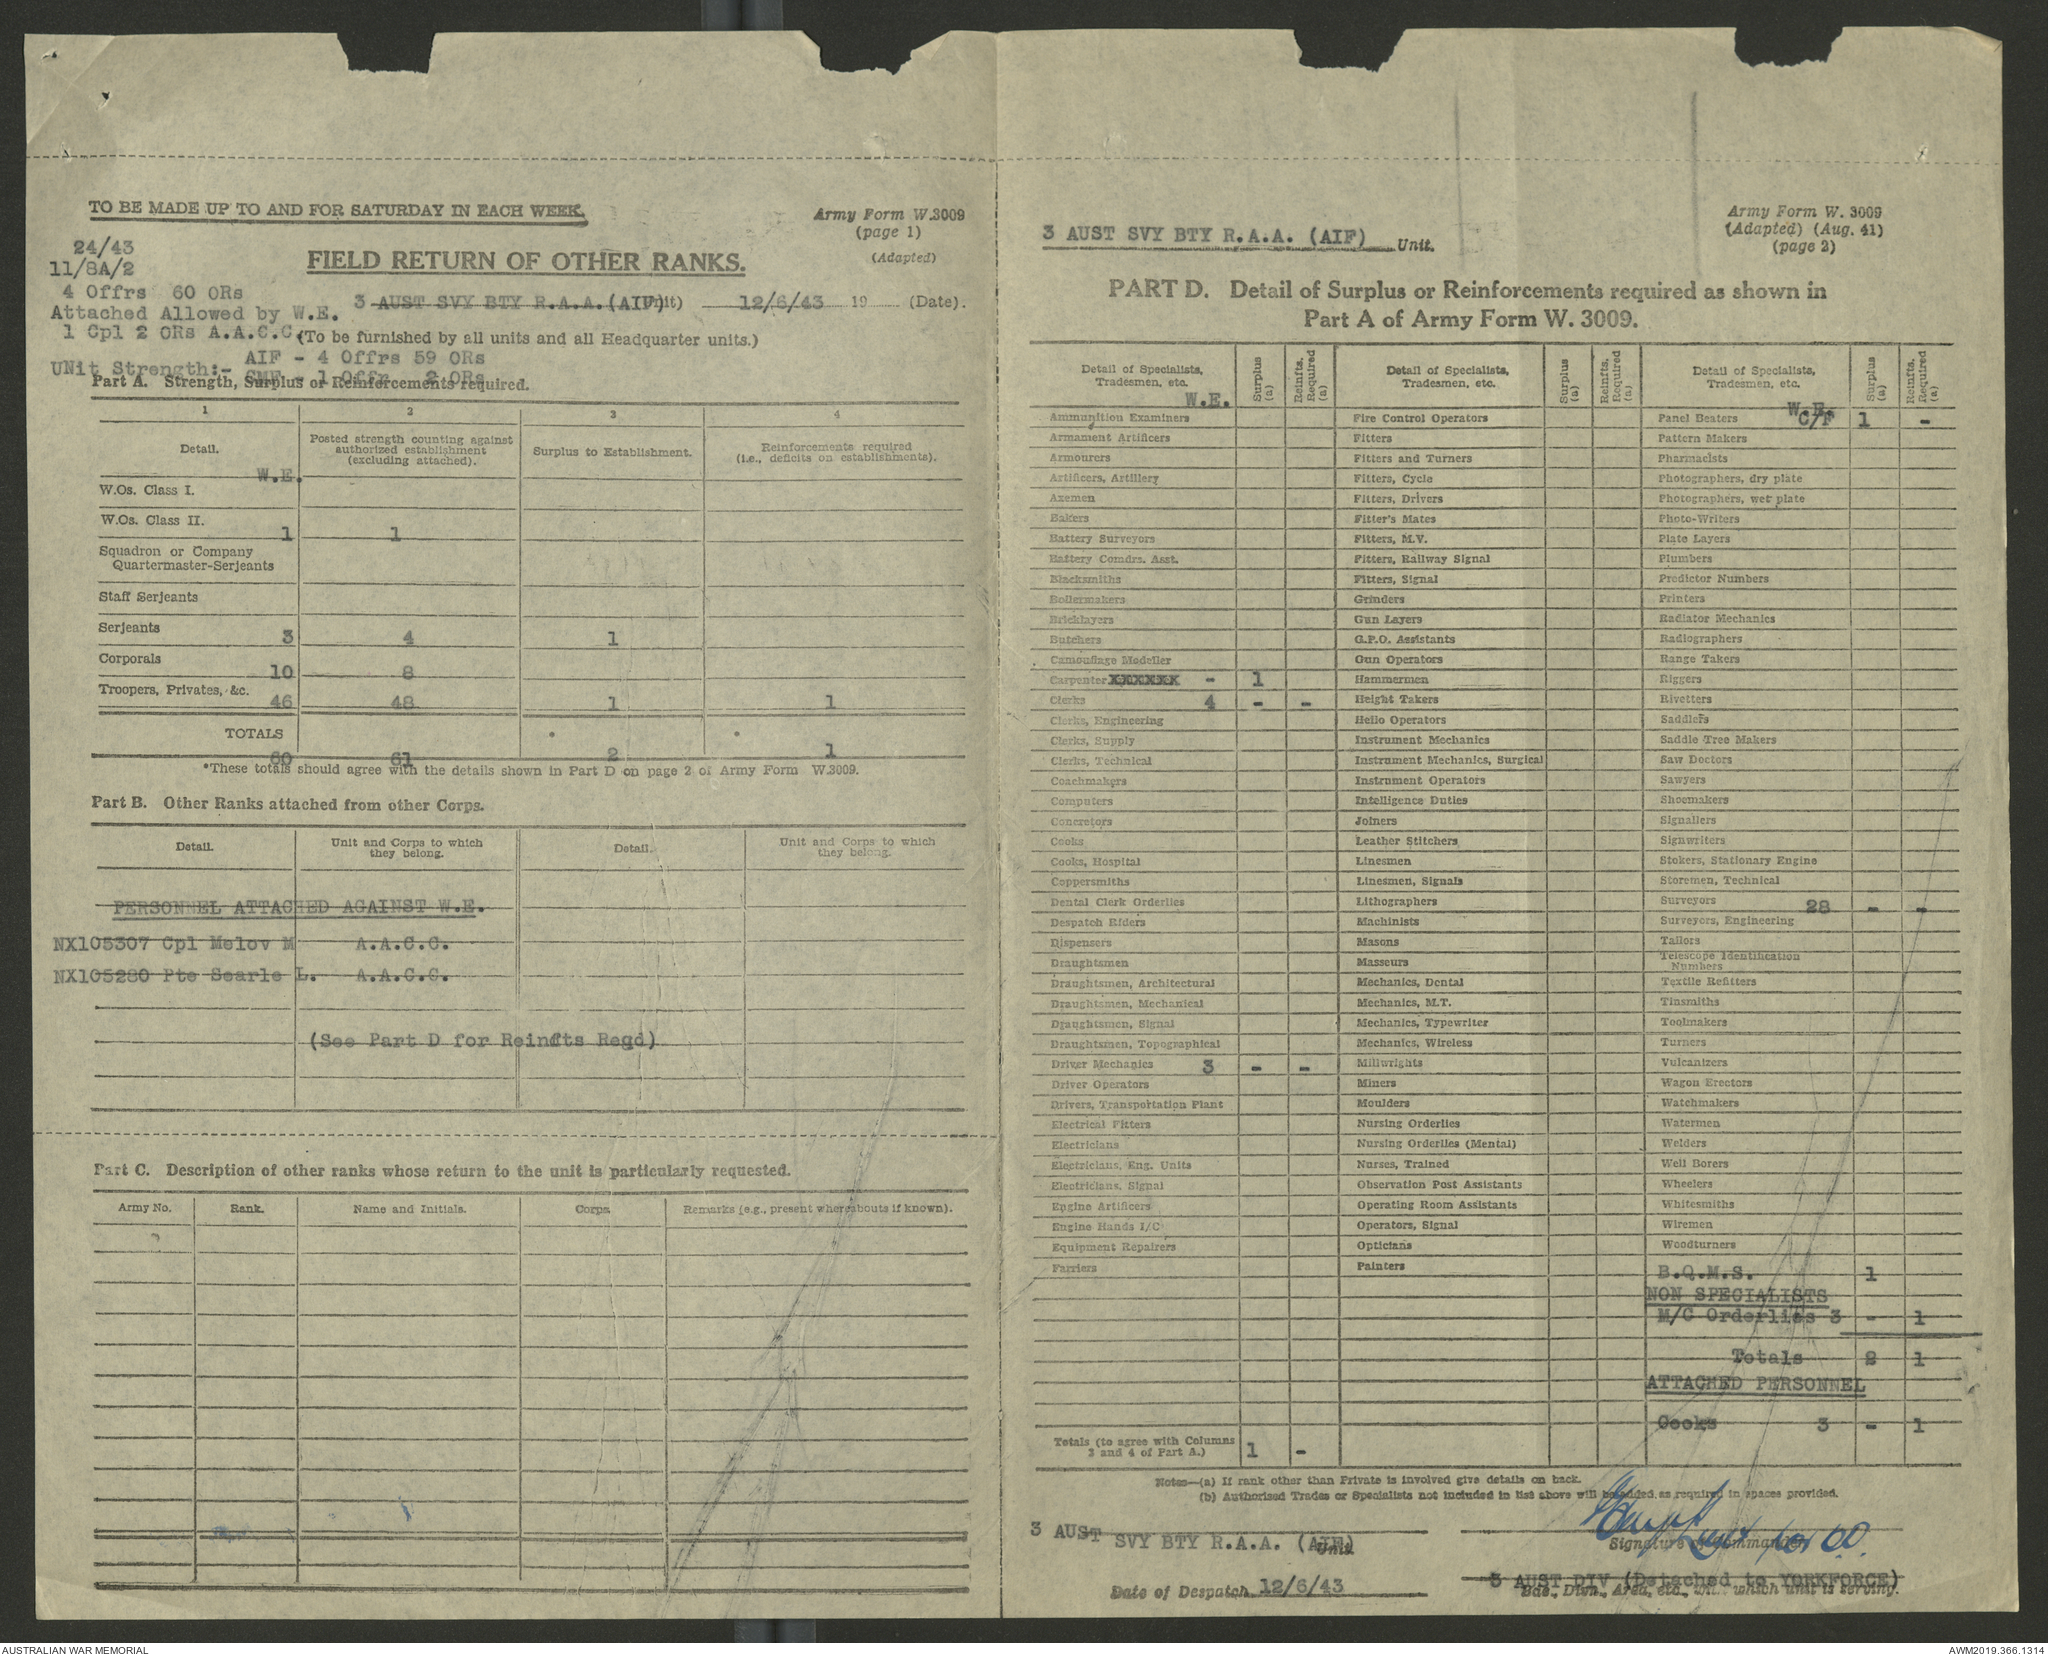 TO BE MADE UP TO AND FOR SATURDAY IN EACH WEEK.
Army Form W.3009
(page 1)
(Adapted)
24/43
11/8A/2
FIELD RETURN OF OTHER RANKS.
4 Offrs 60 ORs
3 AUST SVY BTY R.A.A.(AIF) 12/6/43 19 (Date).
Attached Allowed by W.E.
1 Cpl 2 ORs A.A.C.C.
(To be furnished by all units and all Headquarter units.)
AIF - 4 Offrs 59 ORs
UNit Strength:- CMF - 1 Offr 2 ORs
Part A. Strength, Surplus or Reinforcements required.
1 2 3 4
Detail. Posted strength counting against authorized establishment (excluding attached). Surplus to Establishment. Reinforcements required (i.e., deficits on establishments).
W.E.
W.Os. Class I.
W.Os. Class II. 1 1
Squadron or Company Quartermaster-Serjeants
Staff Serjeants
Serjeants 3 4 1
Corporals 10 8
Troopers, Privates, &c. 46 48 1 1
TOTALS 60 61 * 2 * 1
*These totals should agree with the details shown in Part D on page 2 of Army Form W.3009.
Part B. Other Ranks attached from other Corps.
Detail. Unit and Corps to which they belong. Detail. Unit and Corps to which they belong.
PERSONNEL ATTACHED AGAINST W.E.
NX105307 Cpl Melov M A.A.C.C.
NX105280 Pte Searle L. A.A.C.C.
(See Part D for Reinfts Reqd)
Part C. Description of other ranks whose return to the unit is particularly requested.
Army No. Rank. Name and Initials. Corps. Remarks (e.g., present whereabouts if known).
Army Form W. 3009
(Adapted) (Aug. 41)
(page 2)
3 AUST SVY BTY R.A.A. (AIF) Unit.
PART D. Detail of Surplus or Reinforcements required as shown in
Part A of Army Form W. 3009.
Detail of Specialists, Tradesmen, etc. Surplus (a) Reinfts. Required (a)
W.E.
Ammunition Examiners
Armament Artificers
Armourers
Artificers, Artillery
Axemen
Bakers
Battery Surveyors
Battery Comdrs. Asst.
Blacksmiths
Boilermakers
Bricklayers
Butchers
Camouflage Modeller
Carpenter XXXXXX - 1
Clerks 4 - -
Clerks, Engineering
Clerks, Supply
Clerks, Technical
Coachmakers
Computers
Concretors
Cooks
Cooks, Hospital
Coppersmiths
Dental Clerk Orderlies
Despatch Riders
Dispensers
Draughtsmen
Draughtsmen, Architectural
Draughtsmen, Mechanical
Draughtsmen, Signal
Draughtsmen, Topographical
Driver Mechanics 3 - -
Driver Operators
Drivers, Transportation Plant
Electrical Fitters
Electricians
Electricians, Eng. Units
Electricians, Signal
Engine Artificers
Engine Hands I/C
Equipment Repairers
Farriers
Totals (to agree with Columns 3 and 4 of Part A.) 1 -
Detail of Specialists, Tradesmen, etc. Surplus (a) Reinfts. Required (a)
Fire Control Operators
Fitters
Fitters and Turners
Fitters, Cycle
Fitters, Drivers
Fitter's Mates
Fitters, M.V.
Fitters, Railway Signal
Fitters, Signal
Grinders
Gun Layers
G.P.O. Assistants
Gun Operators
Hammermen
Height Takers
Helio Operators
Instrument Mechanics
Instrument Mechanics, Surgical
Instrument Operators
Intelligence Duties
Joiners
Leather Stitchers
Linesmen
Linesmen, Signals
Lithographers
Machinists
Masons
Masseurs
Mechanics, Dental
Mechanics, M.T.
Mechanics, Typewriter
Mechanics, Wireless
Millwrights
Miners
Moulders
Nursing Orderlies
Nursing Orderlies (Mental)
Nurses, Trained
Observation Post Assistants
Operating Room Assistants
Operators, Signal
Opticians
Painters
Detail of Specialists, Tradesmen, etc. Surplus (a) Reinfts. Required (a)
W.E.
Panel Beaters C/F 1 -
Pattern Makers
Pharmacists
Photographers, dry plate
Photographers, wet plate
Photo-Writers
Plate Layers
Plumbers
Predictor Numbers
Printers
Radiator Mechanics
Radiographers
Range Takers
Riggers
Rivetters
Saddlers
Saddle Tree Makers
Saw Doctors
Sawyers
Shoemakers
Signallers
Signwriters
Stokers, Stationary Engine
Storemen, Technical
Surveyors 28 - -
Surveyors, Engineering
Tailors
Telescope Identification Numbers
Textile Refitters
Tinsmiths
Toolmakers
Turners
Vulcanizers
Wagon Erectors
Watchmakers
Watermen
Welders
Well Borers
Wheelers
Whitesmiths
Wiremen
Woodturners
B.Q.M.S. 1
NON SPECIALISTS
M/C Orderlies 3 - 1
Totals 2 1
ATTACHED PERSONNEL
Cooks 3 - 1
Notes—(a) If rank other than Private is involved give details on back.
(b) Authorised Trades or Specialists not included in list above will be added as required in spaces provided.
3 AUST SVY BTY R.A.A. (AIF) Unit.
Lieut for OC
Signature of Commander
Date of Despatch 12/6/43
5 AUST DIV (Detached to YORKFORCE)
Bde., Divn., Area, etc., with which unit is serving.
AUSTRALIAN WAR MEMORIAL
AWM2019.366.1314